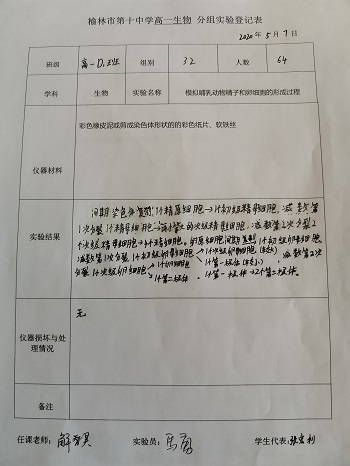 榆林市第十中学高一生物 分组实验登记表
2020年5月7日
班级 高一·D.Z班 组别 32 人数 64
学科 生物 实验名称 模拟哺乳动物精子和卵细胞的形成过程
仪器材料 彩色橡皮泥或剪成染色体形状的的彩色纸片、软铁丝
实验结果
间期染色体复制1个精原细胞→1个初级精母细胞,减数第
1次分裂1个精母细胞→的次级精母细胞,减数第2次分裂2
个次级精母细胞→4个精细胞。卵原细胞间期复制1个初级卵母细胞
减数第1次分裂1个初级卵母细胞 1个次级卵母细胞 1个第一极体 减数第2次
分裂1个次级卵母细胞 1个卵细胞 1个第二极体 1个第一极体→2个第二极体。
仪器损坏与处理情况 无
备注
任课老师: 实验员: 学生代表: